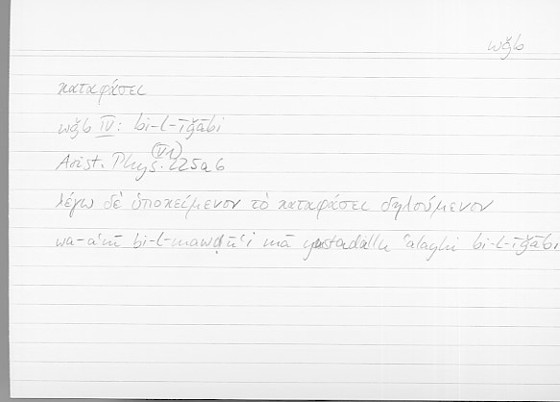 wǧb
καταφάσει
wǧb IV: bi-l-īǧābi
Arist. Phys. (V 1) 225a6
λέγω δὲ ὑποκείμενον τὸ καταφάσει δηλούμενον
wa-aʿnī bi-l-mawḍūʿi mā yustadallu ʿalayhi bi-l-īǧābi